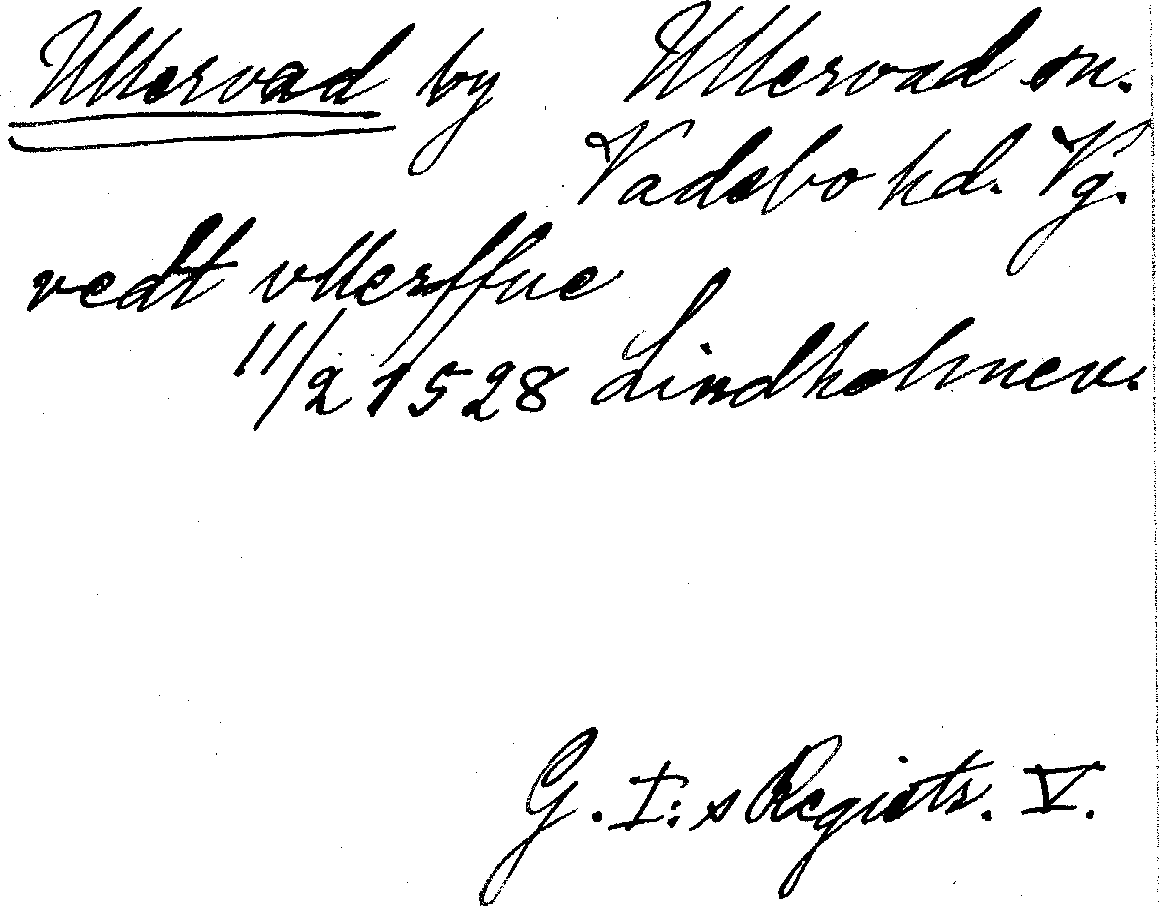 Ullervad by Ullervad sn.
Vadsbo hd. Vg.
vedt vllerffue
11/2 1528 Lindholmen.
G. I:s Registr. V.